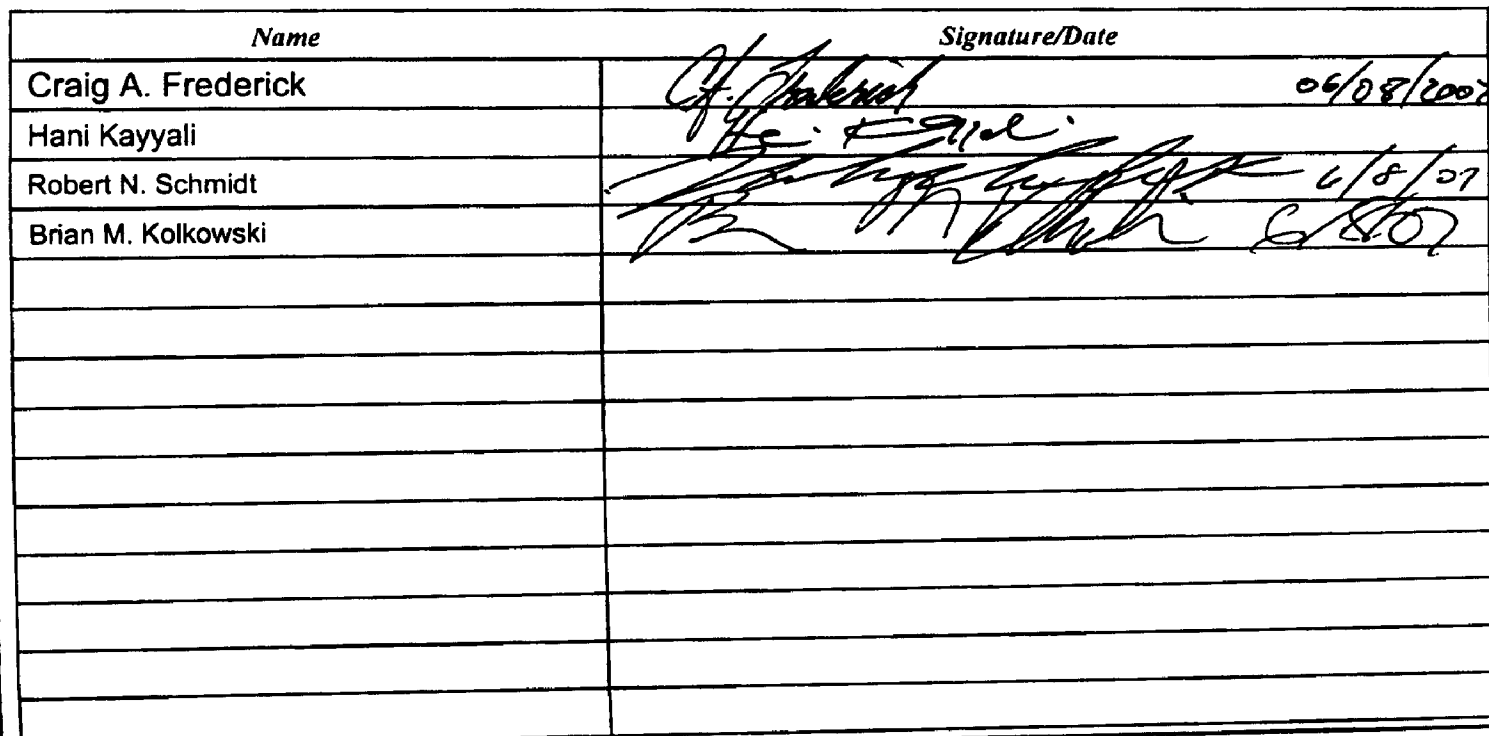 Name Signature/Date
Craig A. Frederick C.A. Frederick 06/08/2007
Hani Kayyali
Robert N. Schmidt 6/8/07
Brian M. Kolkowski 6/8/07